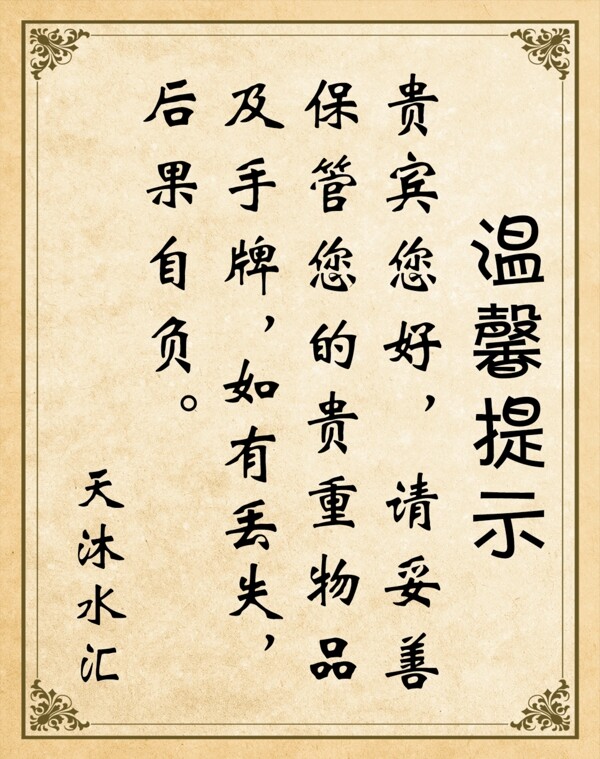 温馨提示
贵宾您好，请妥善
保管您的贵重物品
及手牌，如有丢失，
后果自负。
天沐水汇